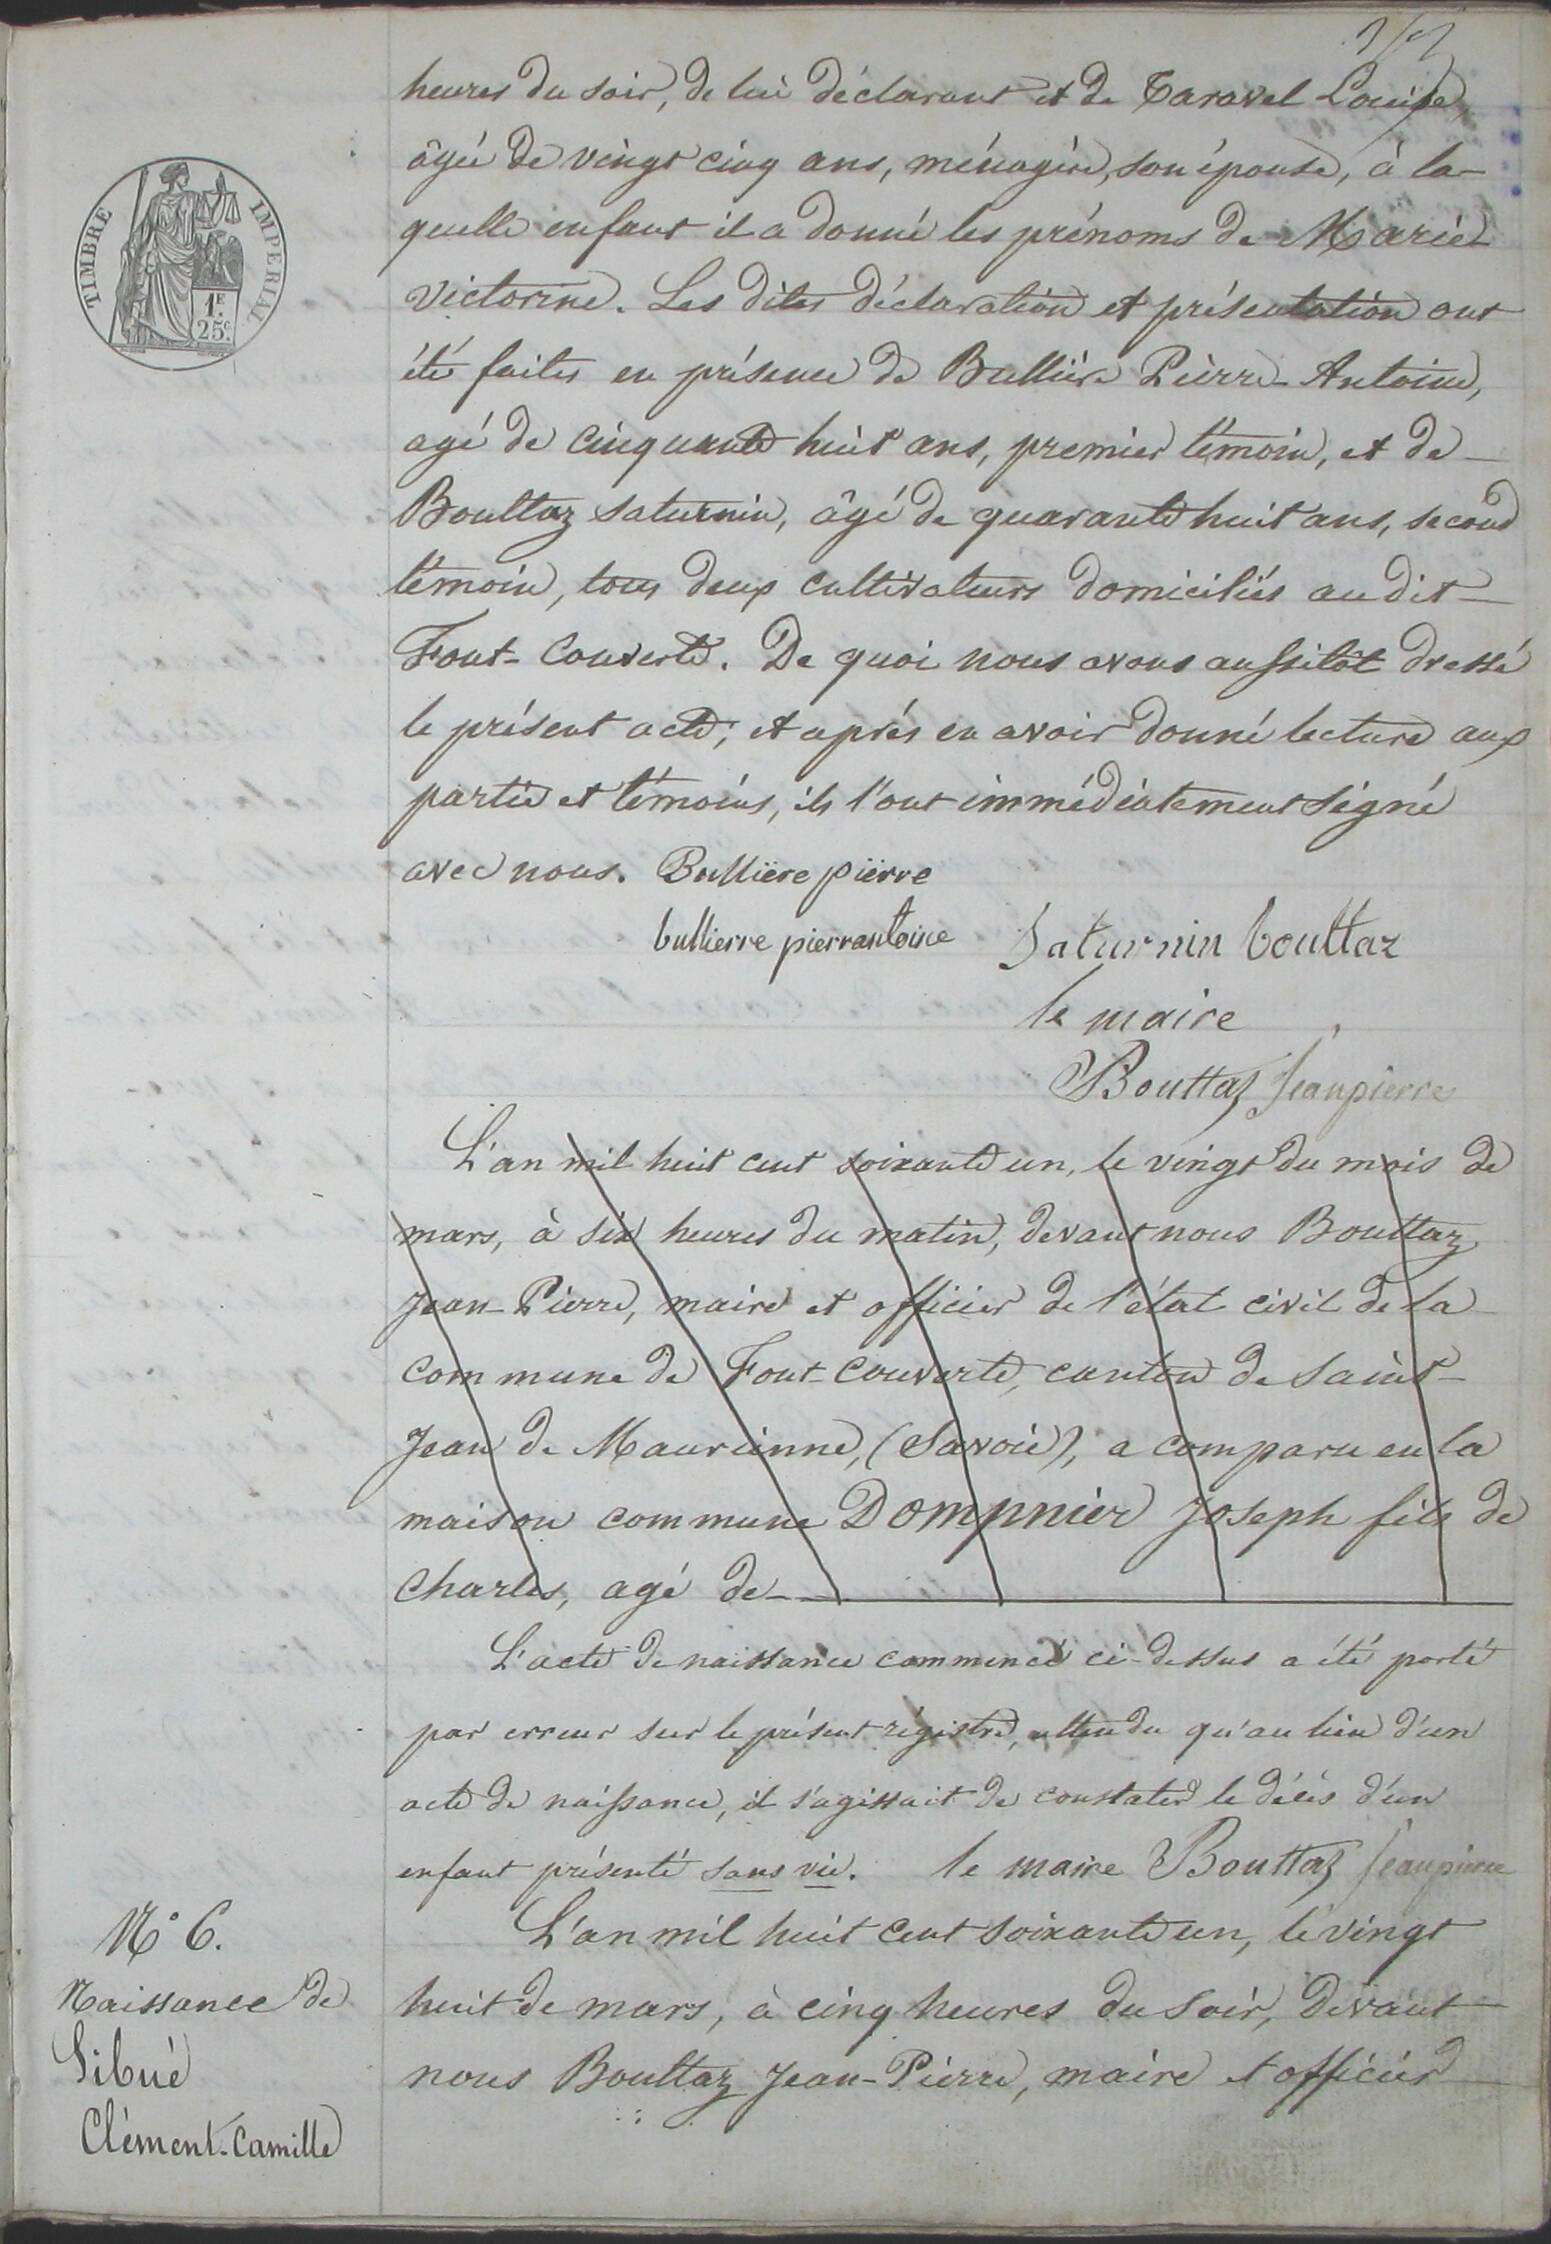 heures du soir, de lui déclarant et de Taravel Louise,
âgée de vingt cinq ans, ménagère, son épouse, à la-
quelle enfant il a donné les prénoms de Marie
Victorine. Les dites déclaration et présentation ont
été faites en présence de Bullière Pierre-Antoine,
agé de cinquante huit ans, premier témoin, et de
Bouttaz Saturnin, âgé de quarante huit ans, second
témoin, tous deux cultivateurs domiciliés au dit
Font-Couverte. De quoi nous avons aussitôt dressé
le présent acte; et après en avoir donné lecture aux
partie et témoins, ils l'ont immédiatement signé
avec nous. Bullière pièrre
bullierre pierrantoine Saturnin bouttaz
le maire
Bouttaz Jeanpierre
TIMBRE IMPERIAL
1F.
25c.
L'an mil huit cent soixante un, le vingt du mois de
mars, à six heures du matin, devant nous Bouttaz
Jean-Pierre, maire et officier de l'état civil de la
commune de Font-Couverte, canton de Saint-
Jean de Maurienne, (Savoie), a comparu en la
maison commune Dompnier Joseph fils de
Charles, agé de
L'acte de naissance commencé ci-dessus a été porté
par erreur sur le présent régistre, attendu qu'au lieu d'un
acte de naissance, il s'agissait de constater le décès d'un
enfant présenté sans vie. le maire Bouttaz Jeanpierre
N° 6.
Naissance de
Sibué
Clément-Camille
L'an mil huit cent soixante un, le vingt
huit de mars, à cinq heures du soir, devant
nous Bouttaz Jean-Pierre, maire et officier